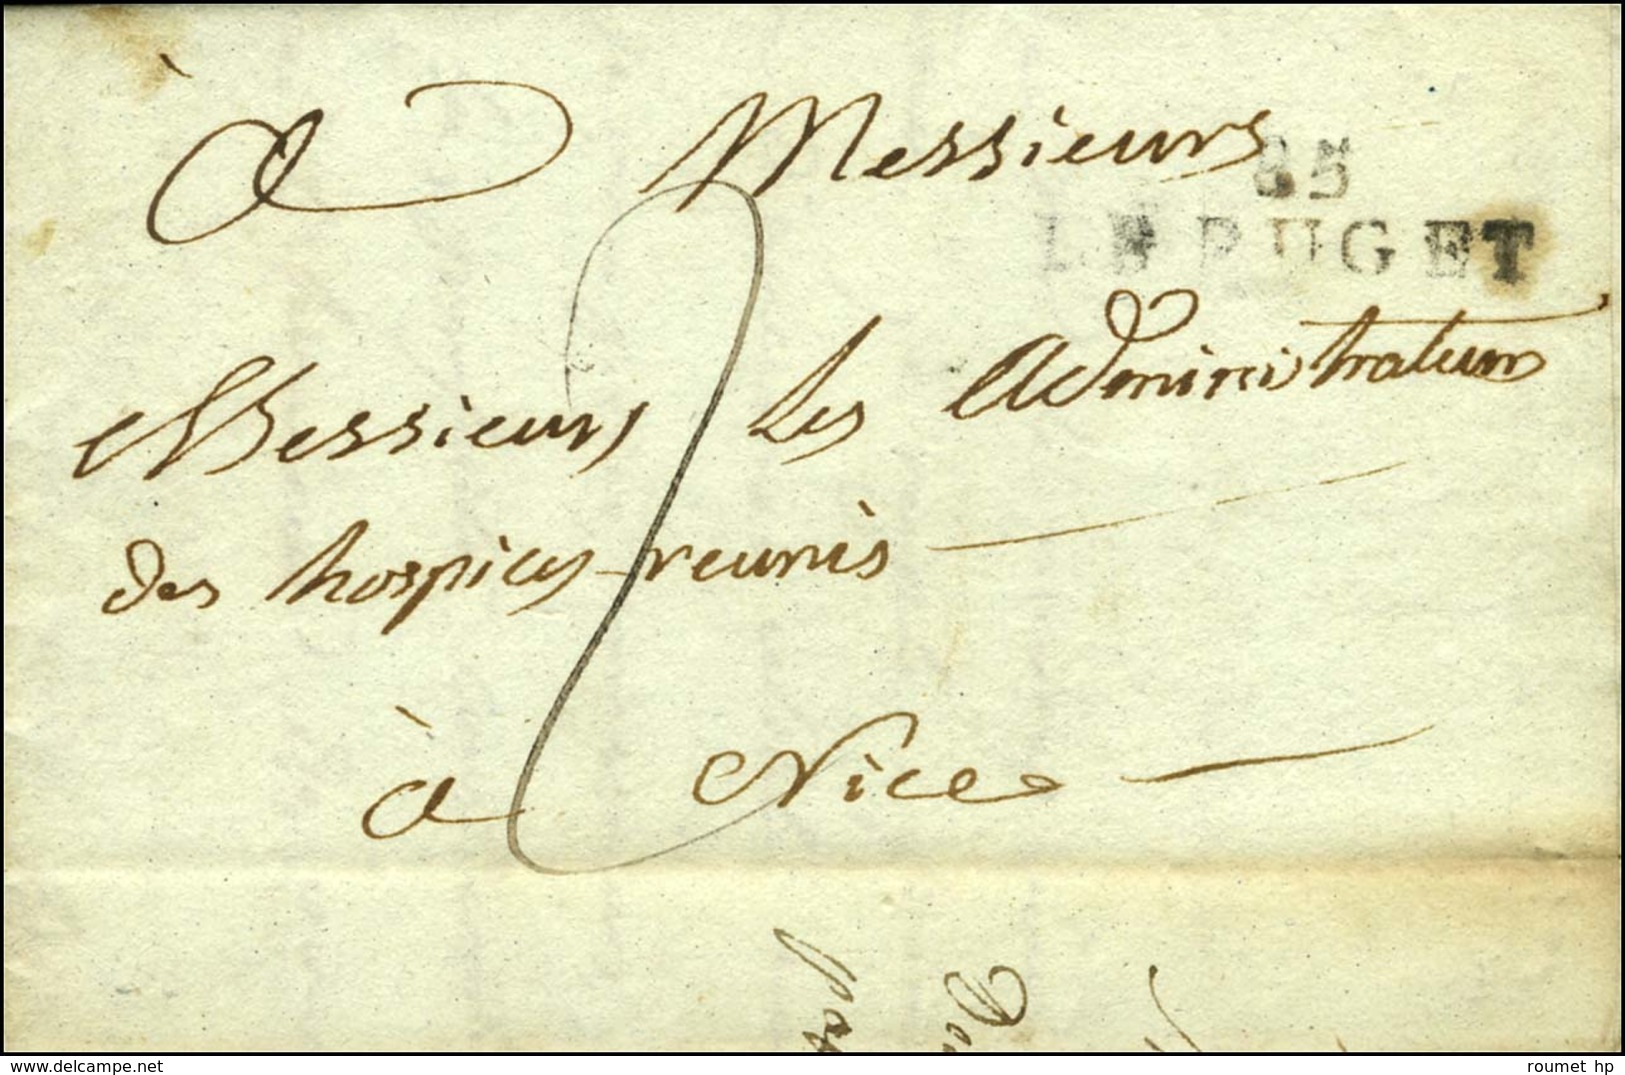 à Messieurs
85
LE PUGET
Messieurs les Administrateurs
des hospices reunis
à Nice
2
roumet hp